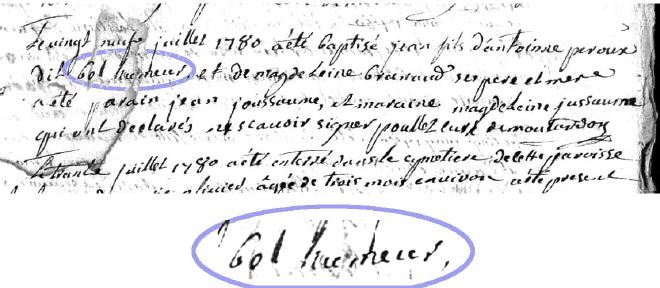 le vingt neufe juillet 1780 a été baptisé jean fils d'antoinne peroux
dit bel humeur, et de magdeleine Granaud ses pere et mere
a été parain jean joussaume, et maraine magdeleine jussaume
qui ont declarés ne scavoir signer poullet curé de moutardon
le trante juillet 1780 a été enterré dans le cymetiere de cette paroisse
agée de trois mois environ a été present
bel humeur,